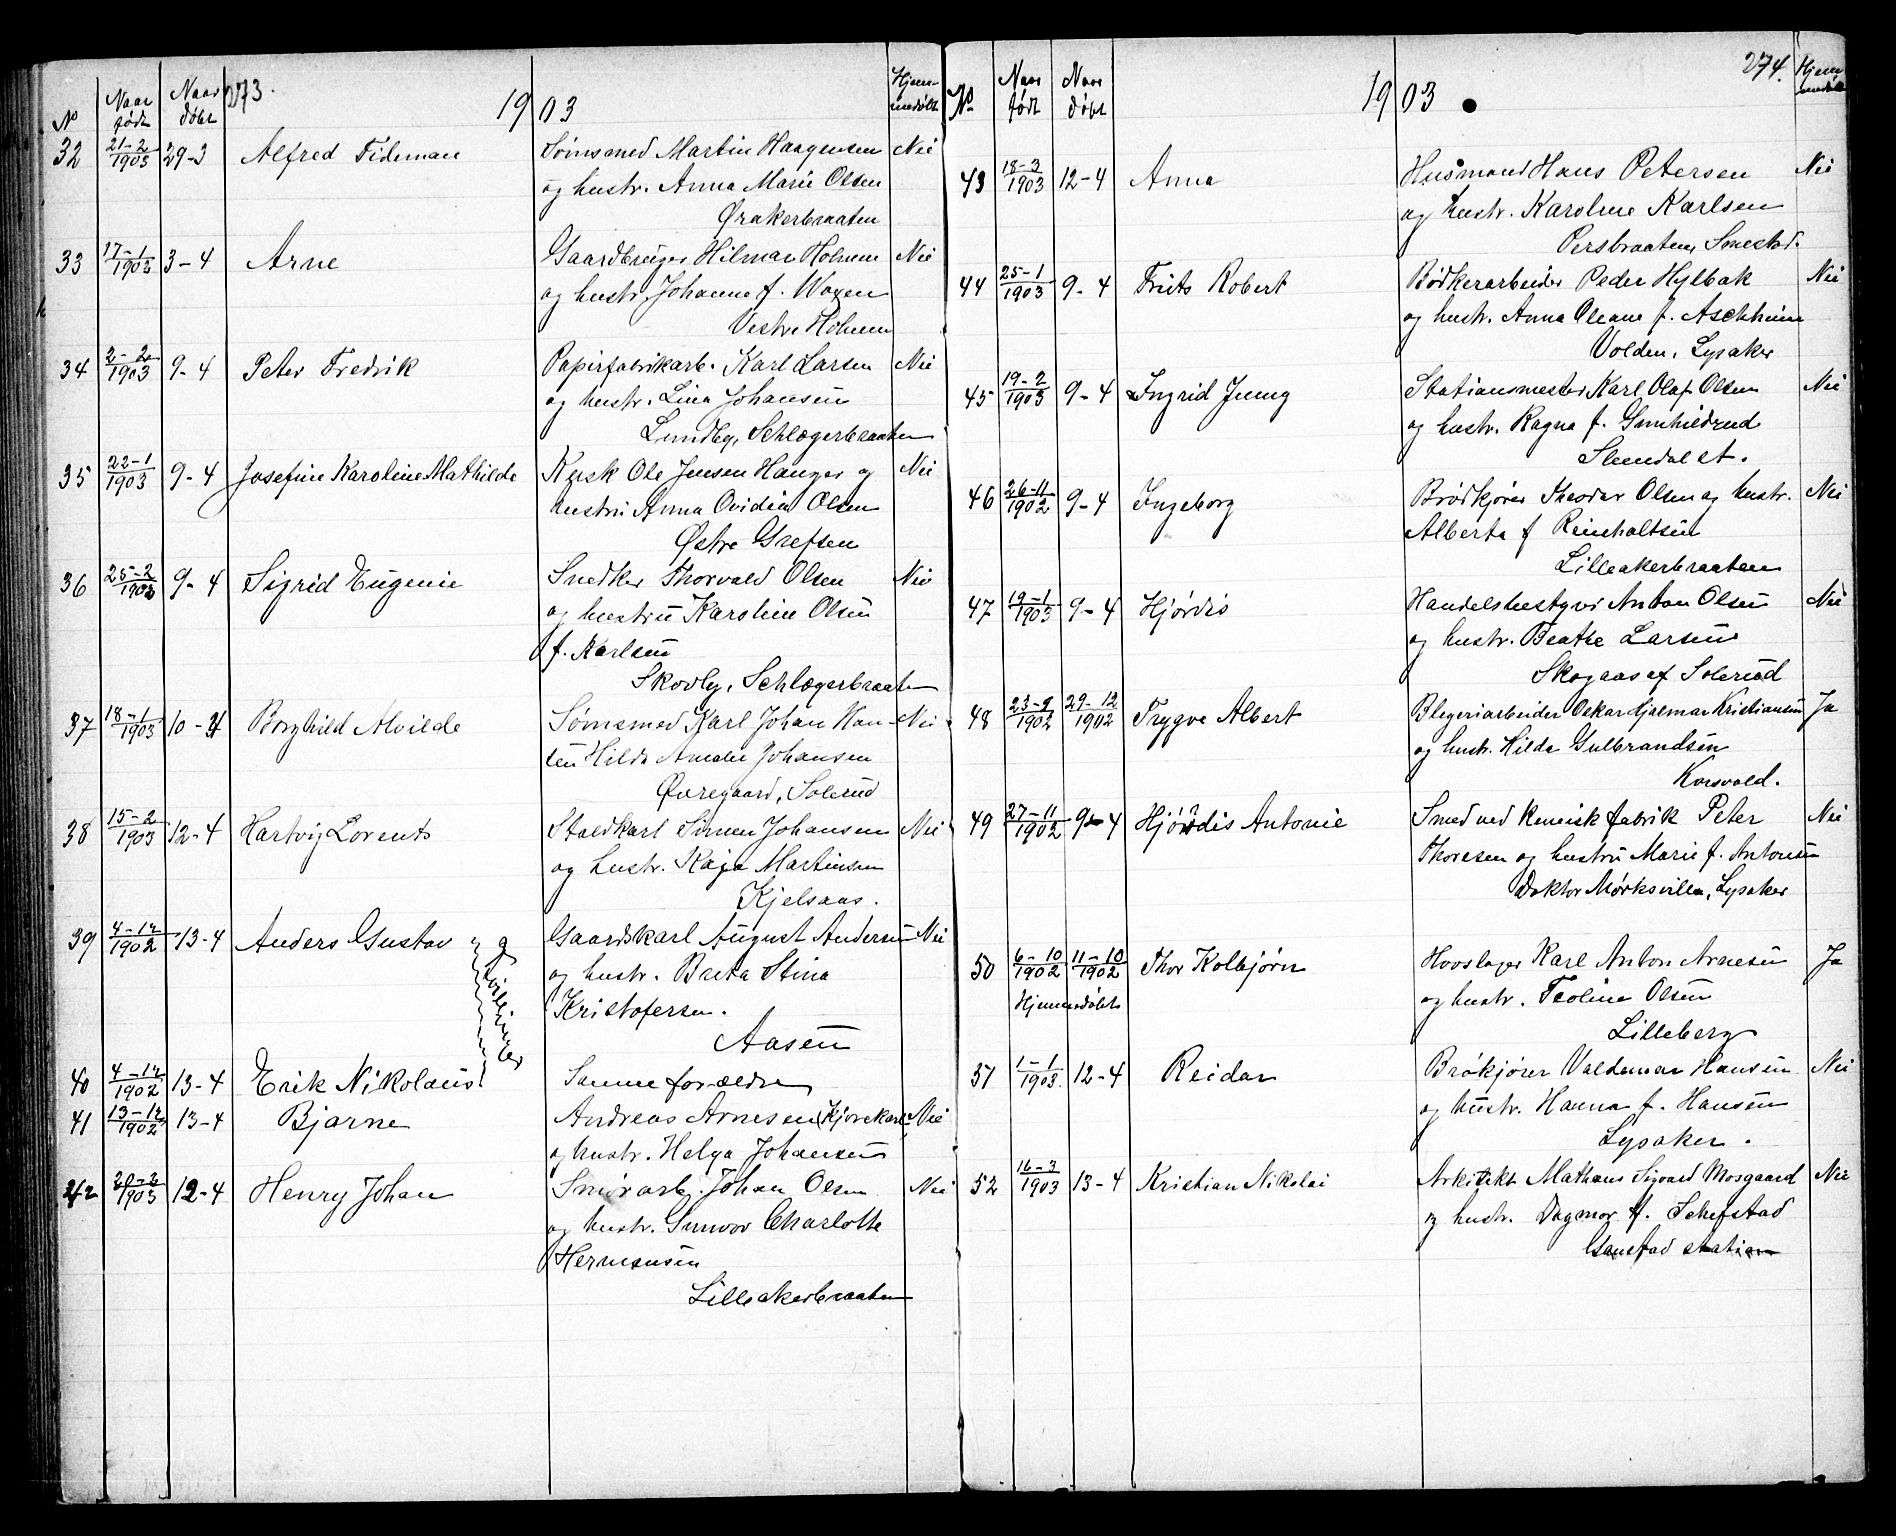 No
Naar født
Naar døbt
273.
1903
Hjemmedøbt
32 21-2 1903 29-3 Alfred Fideman Sømsmed Martin Haagensen Nei
og hustr. Anna Marie Olsen
Ørakerbraaten
33 17-1 1903 3-4 Arne Gaardbruger Hilmar Holmen Nei
og hustr. Johanne f. Wøyen
Vestre Holmen
34 2-2 1903 9-4 Peter Fredrik Papirfabrikarb. Karl Larsen Nei
og hustr. Lina Johansen
Lundby, Schlægerbraaten
35 22-1 1903 9-4 Josefine Karoline Mathilde Kusk Ole Jensen Hauger og Nei
hustru Anna Ovidia Olsen
Østre Grefsen
36 25-2 1903 9-4 Sigrid Eugenie Snedker Thorvald Olsen Nei
og hustru Karoline Olsen
f. Karlsen
Skovly, Schlægerbraaten
37 18-1 1903 10-4 Borghild Alvilde Sømsmed Karl Johan Han- Nei
sen Hilda Amalie Johansen
Øvregaard, Solerud
38 15-2 1903 12-4 Hartvig Lorents Staldkarl Simen Johansen Nei
og hustr. Kaja Martinsen
Kjelsaas.
39 4-12 1902 13-4 Anders Gustav og Gaardskarl August Andersen Nei
tvillinger
og hustr. Brita Stina
Kristofersen.
Aasen
40 4-12 1902 13-4 Erik Nikolaus Samme forældre
41 13-12 1902 13-4 Bjarne Andreas Arnesen (Kjørekarl) Nei
og hustr. Helga Johansen
42 20-2 1903 12-4 Henry Johan Smørarbj. Johan Olsen Nei
og hustr. Gunvor Charlotte
Hermansen
Lilleakerbraaten
No
Naar født
Naar døbt
1903
274.
Hjemmedøbt
43 18-3 1903 12-4 Anna Husmand Hans Petersen Nei
og hustr. Karoline Karlsen
Persbraaten, Smestad.
44 25-1 1903 9-4 Frits Robert Bødkerarbeider Peder Hylbak Nei
og hustr. Anna Oleane f. Aschheim
Volden, Lysaker
45 19-2 1903 9-4 Ingrid Jenny Stationsmester Karl Olaf Olsen Nei
og hustr. Ragna f. Gunhildrud
Slemdal st.
46 26-11 1902 9-4 Ingeborg Brødkjører Theodor Olsen og hustr. Nei
Alberta f Reinholtsen
Lilleakerbraaten
47 19-1 1903 9-4 Hjørdis Handelsbestyrer Anton Olsen Nei
og hustr. Beathe Larsen
Skogaas af Solerud
48 23-9 1902 29-12 1902 Trygve Albert Blegeriarbeider Oskar Hjalmar Kristiansen Ja
og hustr. Hilda Gulbrandsen
Korsvold.
49 27-11 1902 9-4 Hjørdis Antonie Smed ved kemisk fabrik Peter Nei
Thoresen og hustru Marie f. Antonsen
Doktor Mørksvilla, Lysaker
50 6-10 1902 11-10 1902 Thor Kolbjørn Hovslager Karl Anton Arnesen Ja
Hjemmedøbt
og hustr. Teoline Olsen
Lilleberg
51 1-1 1903. 12-4 Reidar Brøkjører Valdemar Hansen Nei
og hustr. Hanna f. Hansen
Lysaker.
52 16-3 1903 13-4 Kristian Nikolai Arkitekt Mathæus Sigvard Mosgaard Nei
og hustr. Dagmar f. Schefstad
Gaustad station